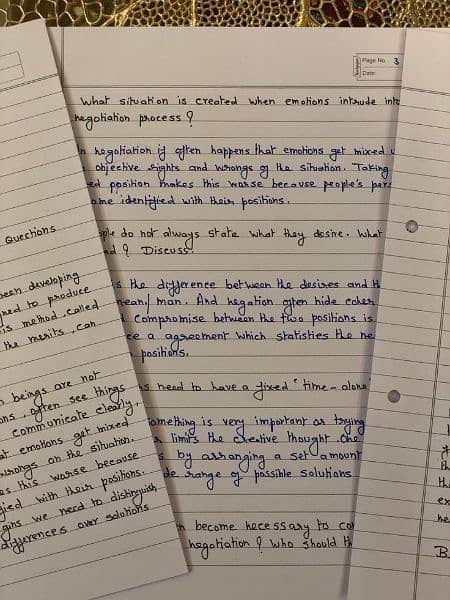 Page No. 3
Date:
What situation is created when emotions intrude into
negotiation process?
negotiation it often happens that emotions get mixed
objective rights and wrongs of the situation. Taking
position makes this worse because people's
identified with their positions.
do not always state what they desire. What
? Discuss.
the difference between the desires and
man. And negation often hide
compromise between the two positions is
a agreement which statisties the
positions.
need to have a fixed "time-alone
something is very important as trying
limits the creative thought. One
by arranging a set amount
range of possible solutions
become necessary to
negotiation? Who should
Questions
been developing
to produce
method, called
the merits, can
beings are not
often see things
communicate clearly.
emotions get mixed
wrongs on the situation.
this worse because
with their positions.
we need to distinguish
differences over solutions